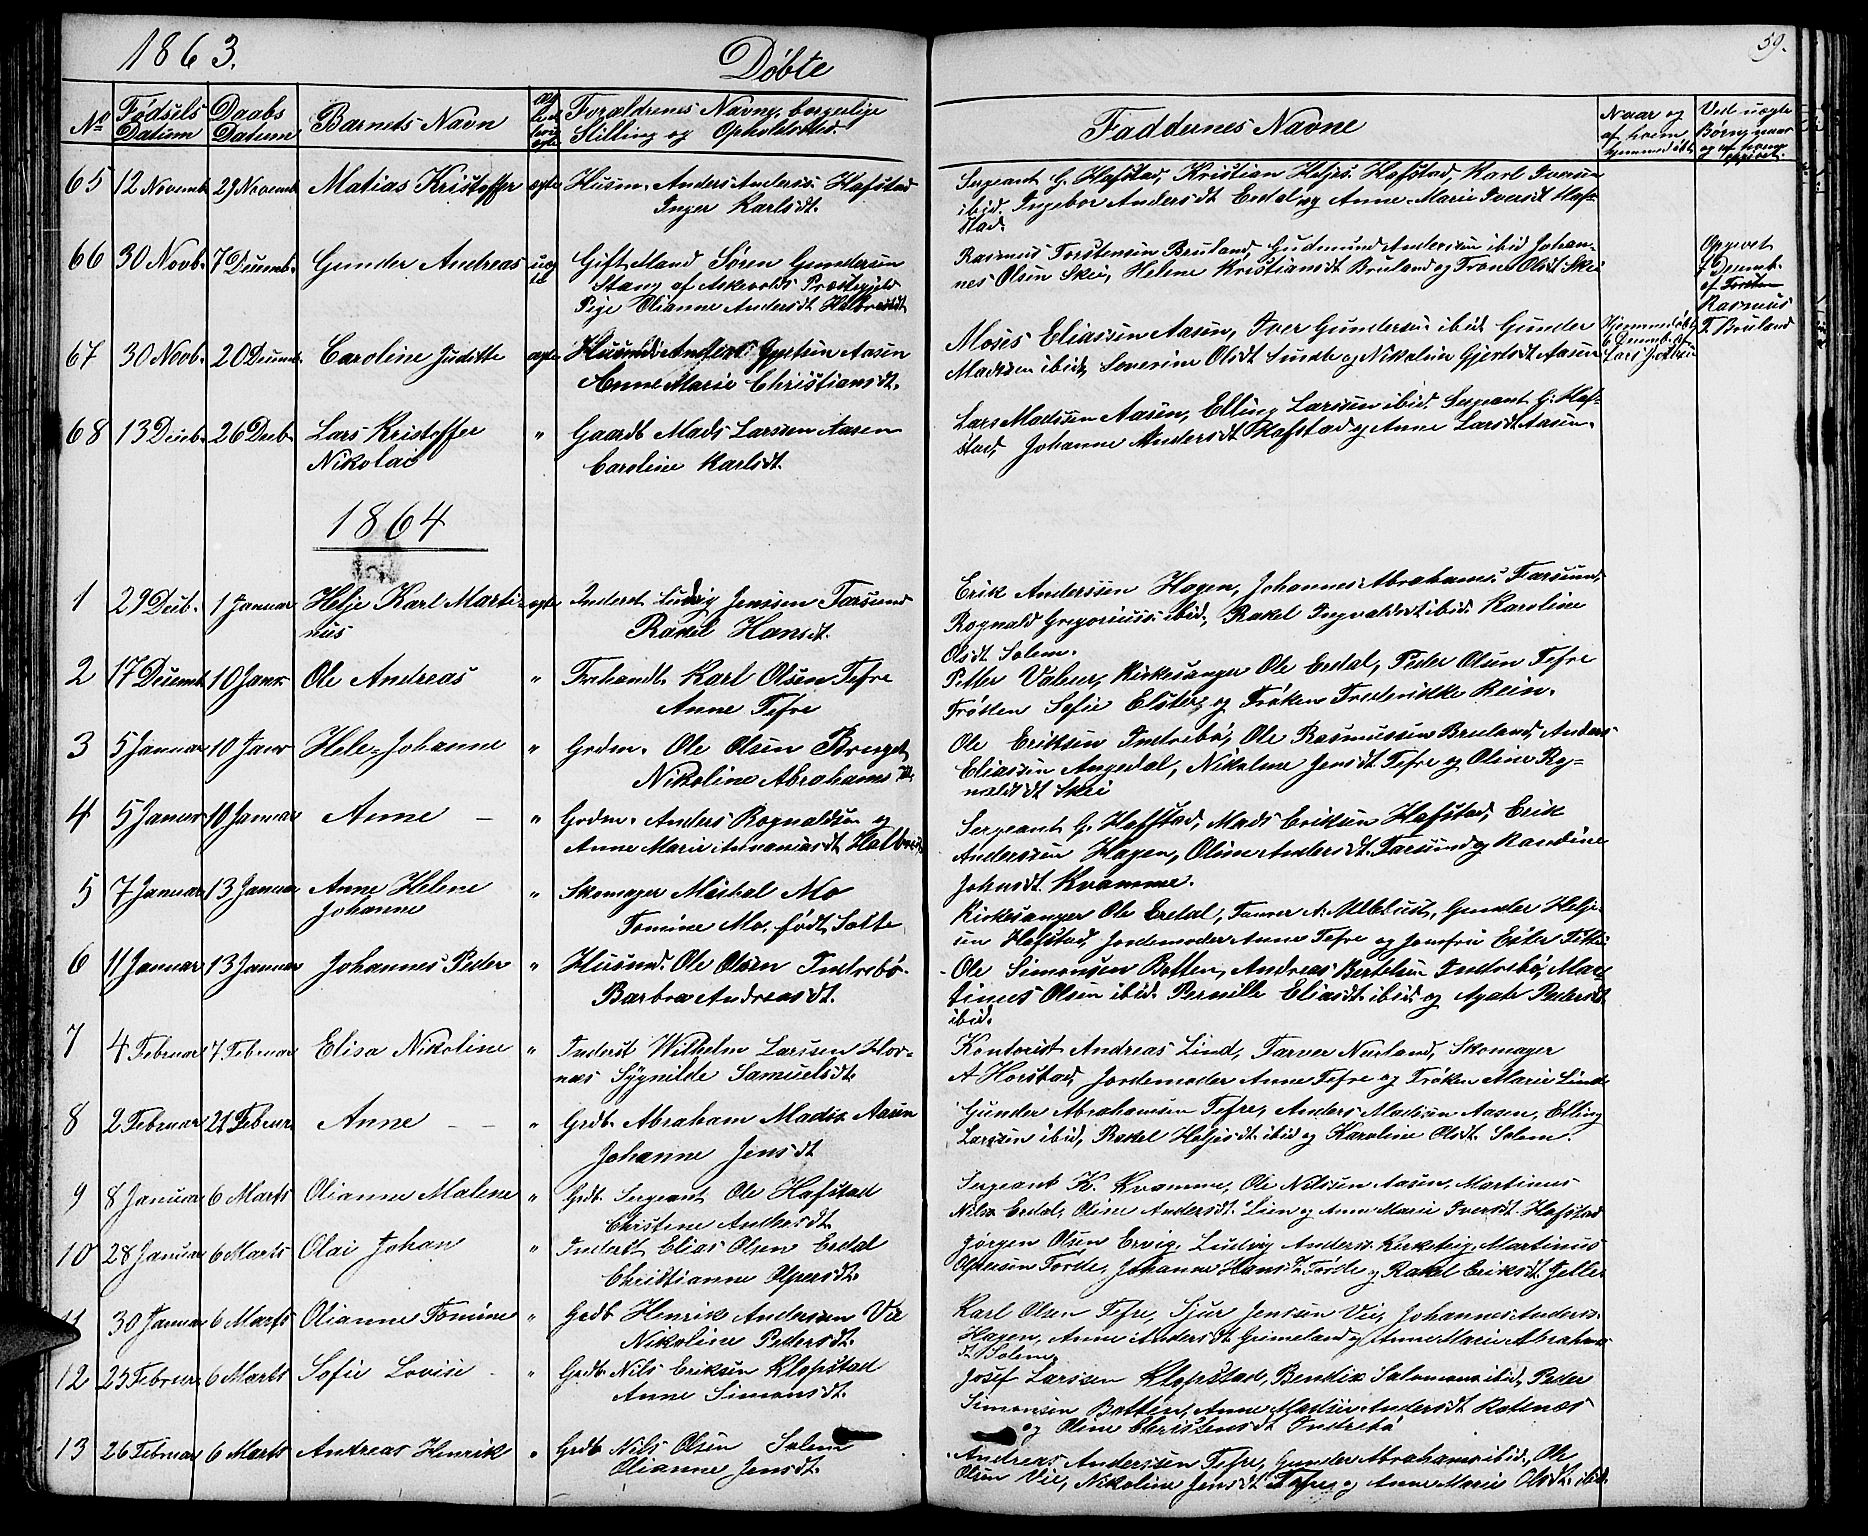 1863. Døbte 59.
No Fødsels Datum Daabs Datum Barnets Navn Forældrenes Navne, borgerlige Stilling og Opholdsted. Faddernes Navne Naar og af hvem hjemmedøbt Ved uægte Børn, naar og af hvem opgivet.
65 12 Novemb 29 Novemb Matias Kristoffer ægte Husm. Anders Anderss. Hafstad
Inger Karlsdt.
Sergeant G. Hafstad, Kristian Heljes. Hafstad, Karl Iversen
ibid. Ingebor Andersdt Erdal og Anne Marie Iversdt Haf-
stad.
66 30 Novb. 7 Decemb. Gunder Andreas uæg
te
Gift Mand Søren Gundersen
Stang af Askevolds Præstegjeld
Pige Olianne Andersdt Halbrendt
Rasmus Torstensen Bruland, Gudmund Anderssen ibid Johan-
nes Olsen Skei, Helene Kristiansdt Bruland og Trone Olsdt Skei
Opgivet
7 Decemb.
af Torsten
Rasmus
T. Bruland
67 30 Novb. 20 Decemb. Caroline Juditte ægte Husmd. Anders Gjertsen Aasen
Anne Marie Christiansdt.
Moses Eliassen Aasen, Iver Gundersen ibid Gunder
Madssen ibid, Severine Olsdt Sunde og Nikoline Gjertsdt Aasen
Hjemmedøbt
6 Decemb. af
Lars
68 13 Decb. 26 Decb. Lars Kristoffer
Nikolai
" Gaardb Mads Larssen Aasen
Caroline Karlsdt.
Lars Madssen Aasen, Elling Larssen ibid. Sergeant G. Haf-
stad, Johanne Andersdt Hafstad og Anne Larsdt Aasen.
1864
1 29 Decb. 1 Januar Helje Karl Marti-
nus
ægte Inderst Ludvig Jenssen Farsund
Rakel Hansdt.
Erik Anderssen Hagen, Johannes Abrahams. Farsund,
Rognald Gregoriuss. ibid, Rakel Ingvaldsdt ibid. Karoline
Olsdt Solem.
2 17 Decemb 10 Janr Ole Andreas " Frihandl. Karl Olsen Tefre
Anne Tefre
Petter Valeur, Kirkesanger Ole Erdal, Peder Olsen Tefre
Frøken Sofie Elster, og Frøken Frederikke Rein.
3 5 Januar 10 Janr Hele Johanne " Grdm. Ole Olsen Bruget
Nikoline Abrahamsdt
Ole Eriksen Indrebø, Ole Rasmussen Bruland, Anders
Eliassen Angedal, Nikoline Jensdt Tefre og Oline Rog-
naldsdt Skei
4 5 Januar 10 Januar Anne - " Grdm. Anders Rognaldsen og
Anne Marie Ananiasdt Halbrend
Sergeant G. Hafstad, Mads Eriksen Hafstad, Erik
Anderssen Hagen, Oline Andersdt. Farsund og Randine
Johnsdt Kvamme.
5 7 Januar 13 Januar Anne Helene
Johanne
" Skomager Mikal Mo
Tomine Mo, født Solte
Kirkesanger Ole Erdal, Farver A. Ullelust, Gunder Helje-
sen Hafstad, Jordemoder Anne Tefre og Jomfru Ester
6 11 Januar 13 Januar Johannes Peder " Husmd. Ole Olsen Indrebø.
Barbra Andreasdt.
Ole Simonsen Botten, Andreas Bertelsen Indrebø, Mar-
tinus Olsen ibid. Pernille Eliasdt ibid og Agate Pedersdt
ibid.
7 4 Februar 7 Februar Elisa Nikoline " Inderst Wilhelm Larssen Hor-
næs Sygnilde Samuelsdt.
Kontorist Andreas Lind, Farver Nerland, Skomager
A Horstad, Jordemoder Anne Tefre og Frøken Marie Lind.
8 2 Februar 21 Februar Anne - - " Grdb. Abraham Madss. Aasen
Johanne Jensdt
Gunder Abrahamsen Tefre, Anders Madssen Aasen, Elling
Larssen ibid, Rakel Heljesdt. ibid og Karoline Olsdt. Solem.
9 8 Januar 6 Marts Olianne Malene " Grdb Sergeant Ole Hafstad
Christine Andersdt.
Sergeant K. Kvamme, Ole Nilssen Aasen, Martinus
Nilss. Erdal, Oline Andersdt. Lien og Ane Marie Iversdt. Hafstad
10 28 Januar 6 Marts Olai Johan " Inderst Elias Olsen Erdal
Christianne Olpersdt.
Jørgen Olsen Ervig, Ludvig Anders. Kirketeig, Martinus
Førde, Johanne Hansdt Førde og Rakel Eriksdt. Jelle.
11 30 Januar 6 Marts Olianne Tomine " Grdb Henrik Anderssen Vie
Nikoline Pedersdt.
Karl Olsen Tefre, Sjur Jenssen Vie, Johannes Anders.
Hagen, Anne Andersdt Grimeland og Anne Marie Abraham
dt Solem,
12 25 Februar 6 Marts Sofie Lovise - " Grdb Nils Eriksen Klopstad
Anne Simonsdt.
Josef Larssen Klopstad, Bendix Salomons. ibid, Peder
Simonsen Botten, Anne Madsie Andersdt Rotenæs
og Oline Christensdt Indrebø
13 26 Februar 6 Marts Andreas Henrik " Grdb Nils Olsen Solem
Olianne Jensdt.
Andreas Anderssen Tefre, Gunder Abrahams ibid, Ole
Olsen Vie, Nikoline Jensdt Tefre og Anne Marie Olsdt. ibid.